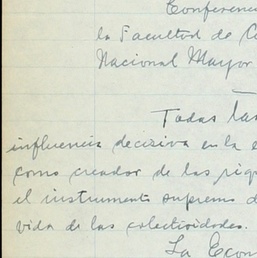 Conferenc
la Facultad de C
Nacional Mayor
Todas las
influencia deciziva en la e
como creador de las riq
el instrumento supremo d
vida de las colectividades.
La Econ